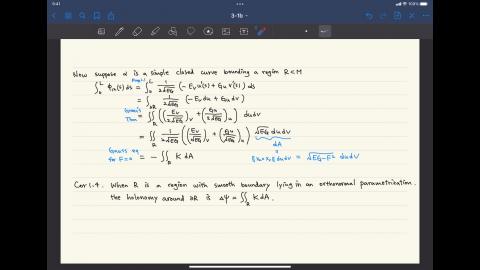 9:41
3-1b
Now suppose α is a simple closed curve bounding a region R ⊂ M
∫₀ᴸ φ₁₂(s) ds = ∫₀ᴸ 1/(2√EG) (-Eᵥ u'(s) + Gᵤ v'(s)) ds
= ∫_∂R 1/(2√EG) (-Eᵥ du + Gᵤ dv)
Thm = ∬_R ((Eᵥ/2√EG)ᵥ + (Gᵤ/2√EG)ᵤ) dudv
= ∬_R 1/(2√EG) ((Eᵥ/√EG)ᵥ + (Gᵤ/√EG)ᵤ) √EG dudv
dA
Gauss eq for F=0 = -∬_R K dA
‖xᵤ × xᵥ‖ dudv = √(EG-F²) dudv
Cor 1.4. When R is a region with smooth boundary lying in an orthonormal parametrization,
the holonomy around ∂R is Δψ = ∬_R K dA.